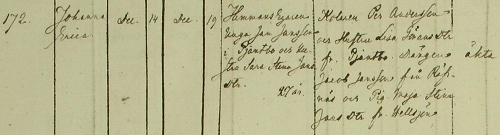 172. Johanna Erica Dec. 14 Dec. 19
Hemmans Egaren
Jan Jansson
i Bjäntbo och hu-
stru Sara Stina Jans
dtr. 27 år.
Kolaren Per Andersson
och Hustru Lisa Jönsdtr
fr. Bjäntbo. Drängen äkta
Jacob Jansson från Räf-
näs och Pig. Maja Stina
Jans dtr fr. Hellsjön